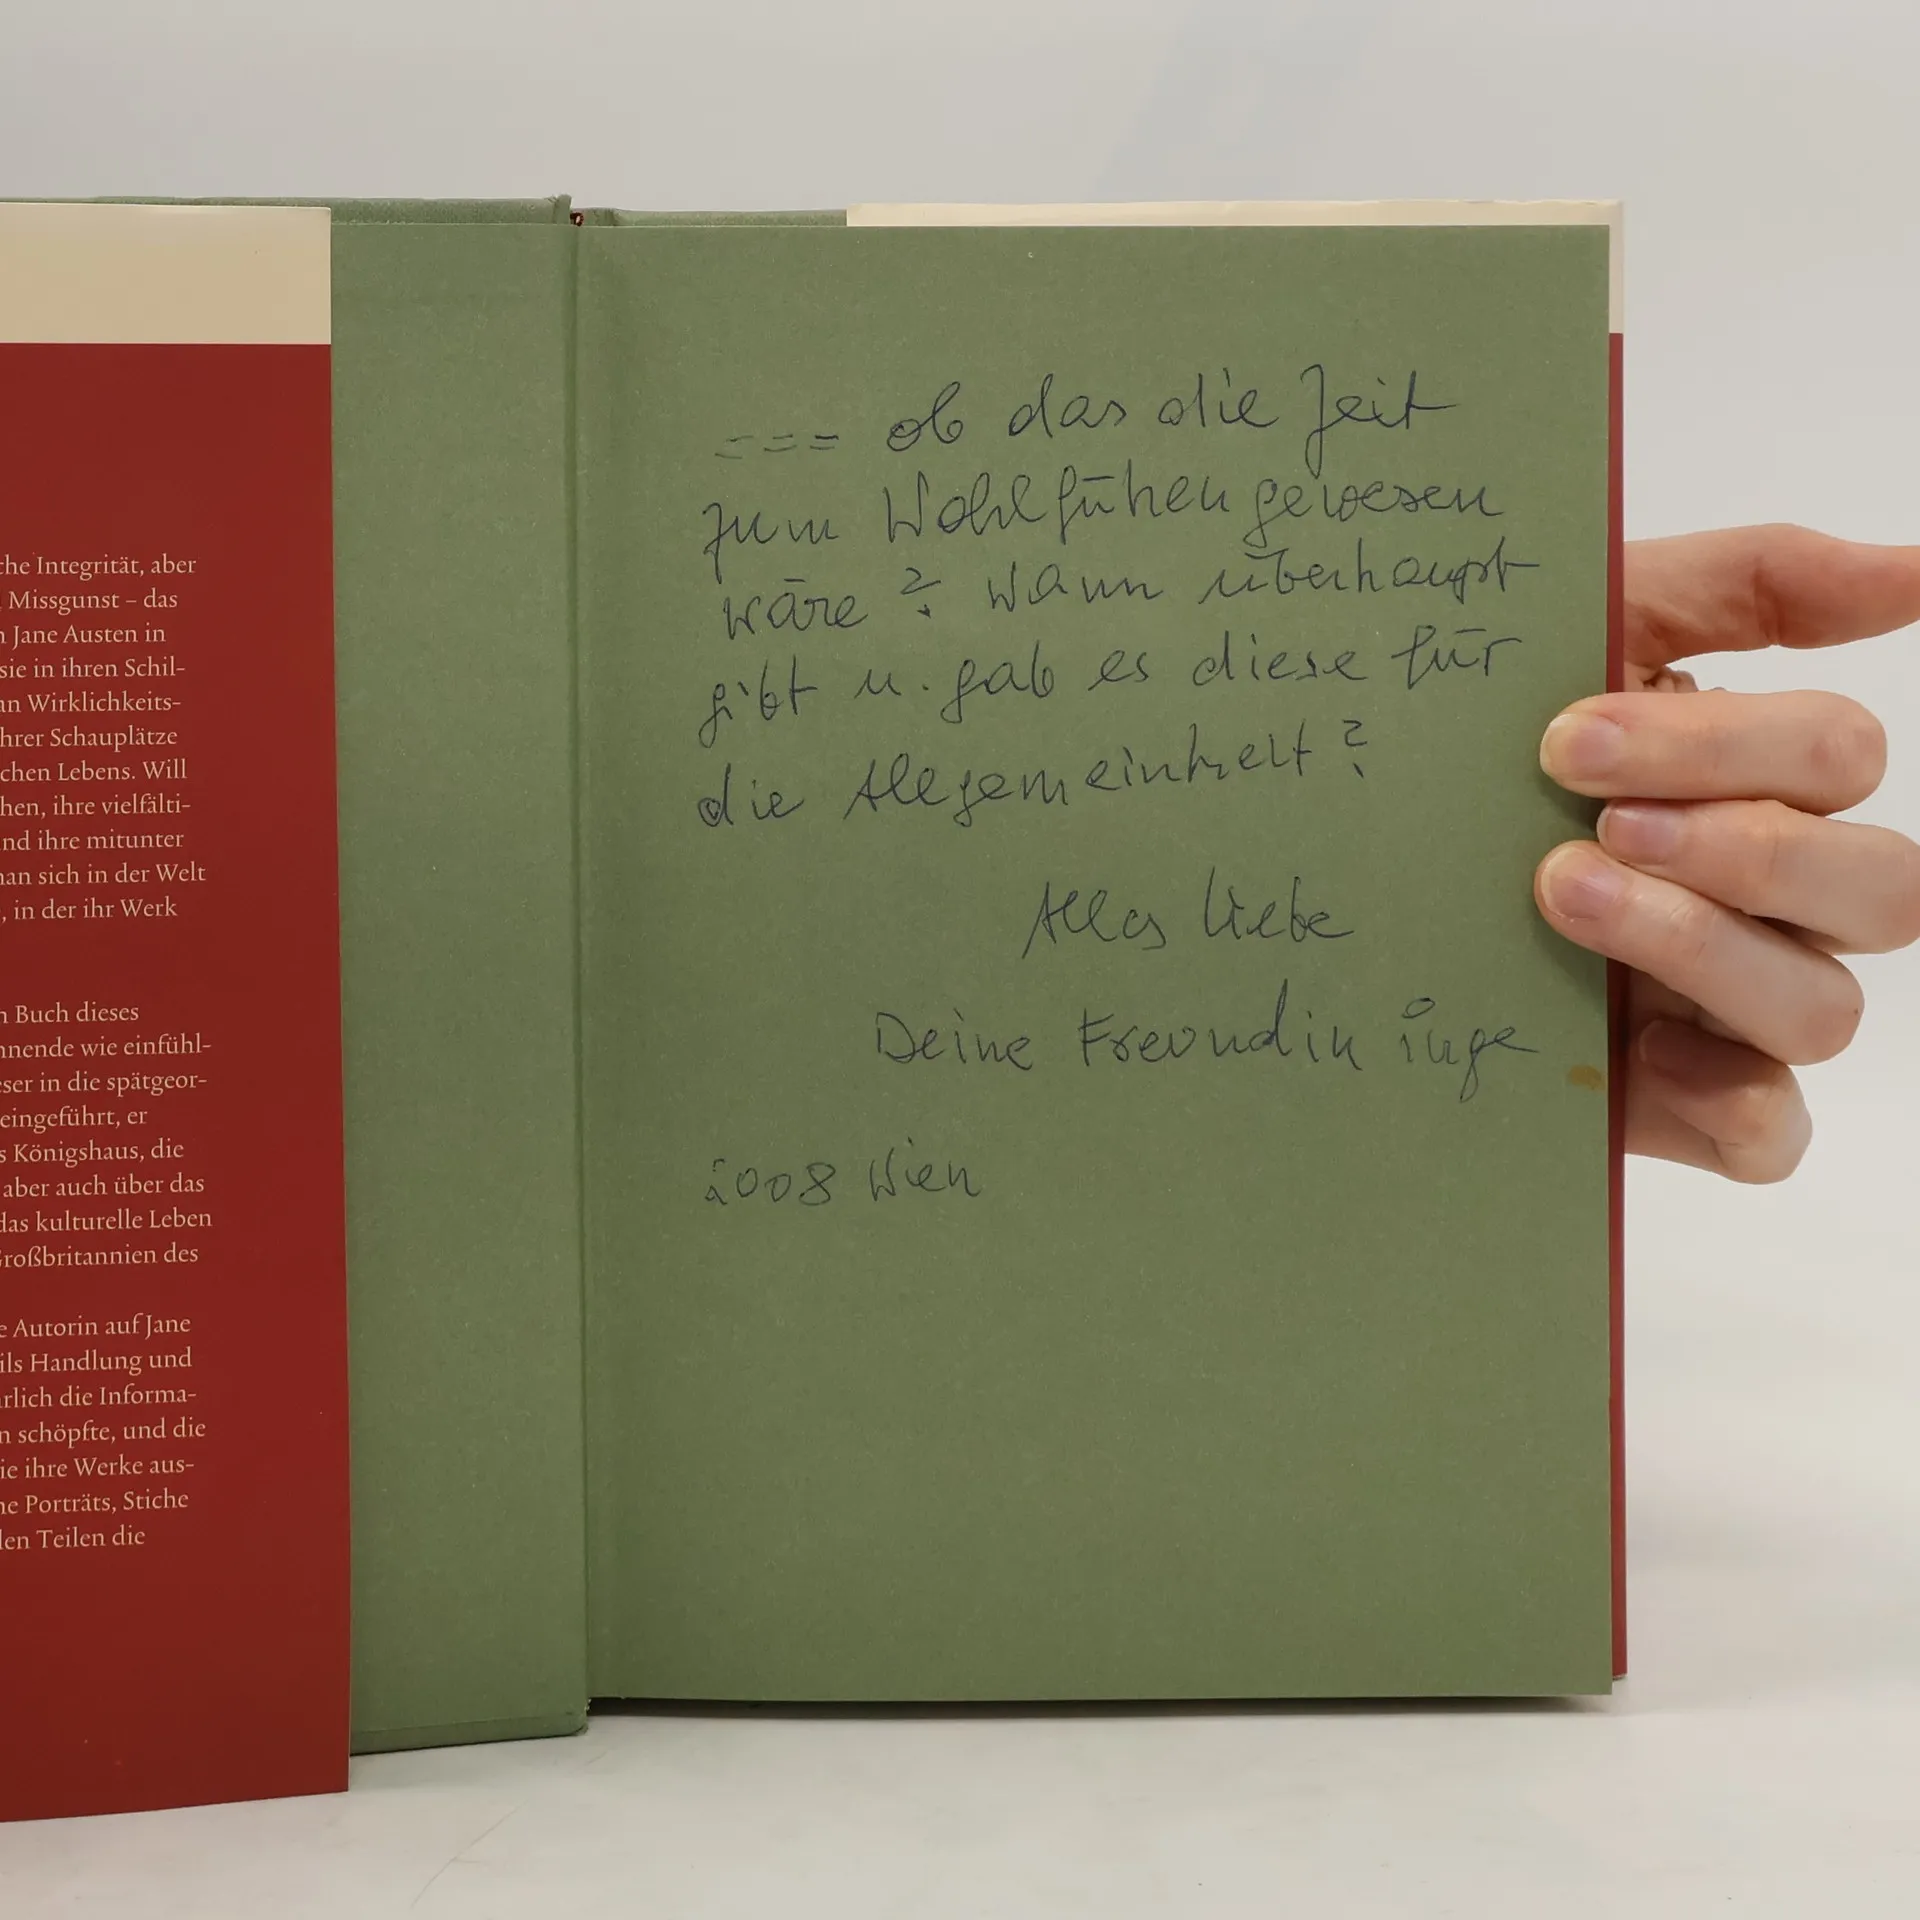 che Integrität, aber
Missgunst – das
n Jane Austen in
sie in ihren Schil-
an Wirklichkeits-
hrer Schauplätze
chen Lebens. Will
hen, ihre vielfälti-
nd ihre mitunter
nan sich in der Welt
, in der ihr Werk
n Buch dieses
nnende wie einfühl-
eser in die spätgeor-
eingeführt, er
s Königshaus, die
aber auch über das
das kulturelle Leben
Großbritannien des
e Autorin auf Jane
ils Handlung und
rlich die Informa-
n schöpfte, und die
ie ihre Werke aus-
ne Porträts, Stiche
den Teilen die
--- ob das die Zeit
zum Wohlfühen gewesen
wäre? Wann überhaupt
gibt u. gab es diese für
die Allgemeinheit?
Alles Liebe
Deine Freundin Inge
2008 Wien